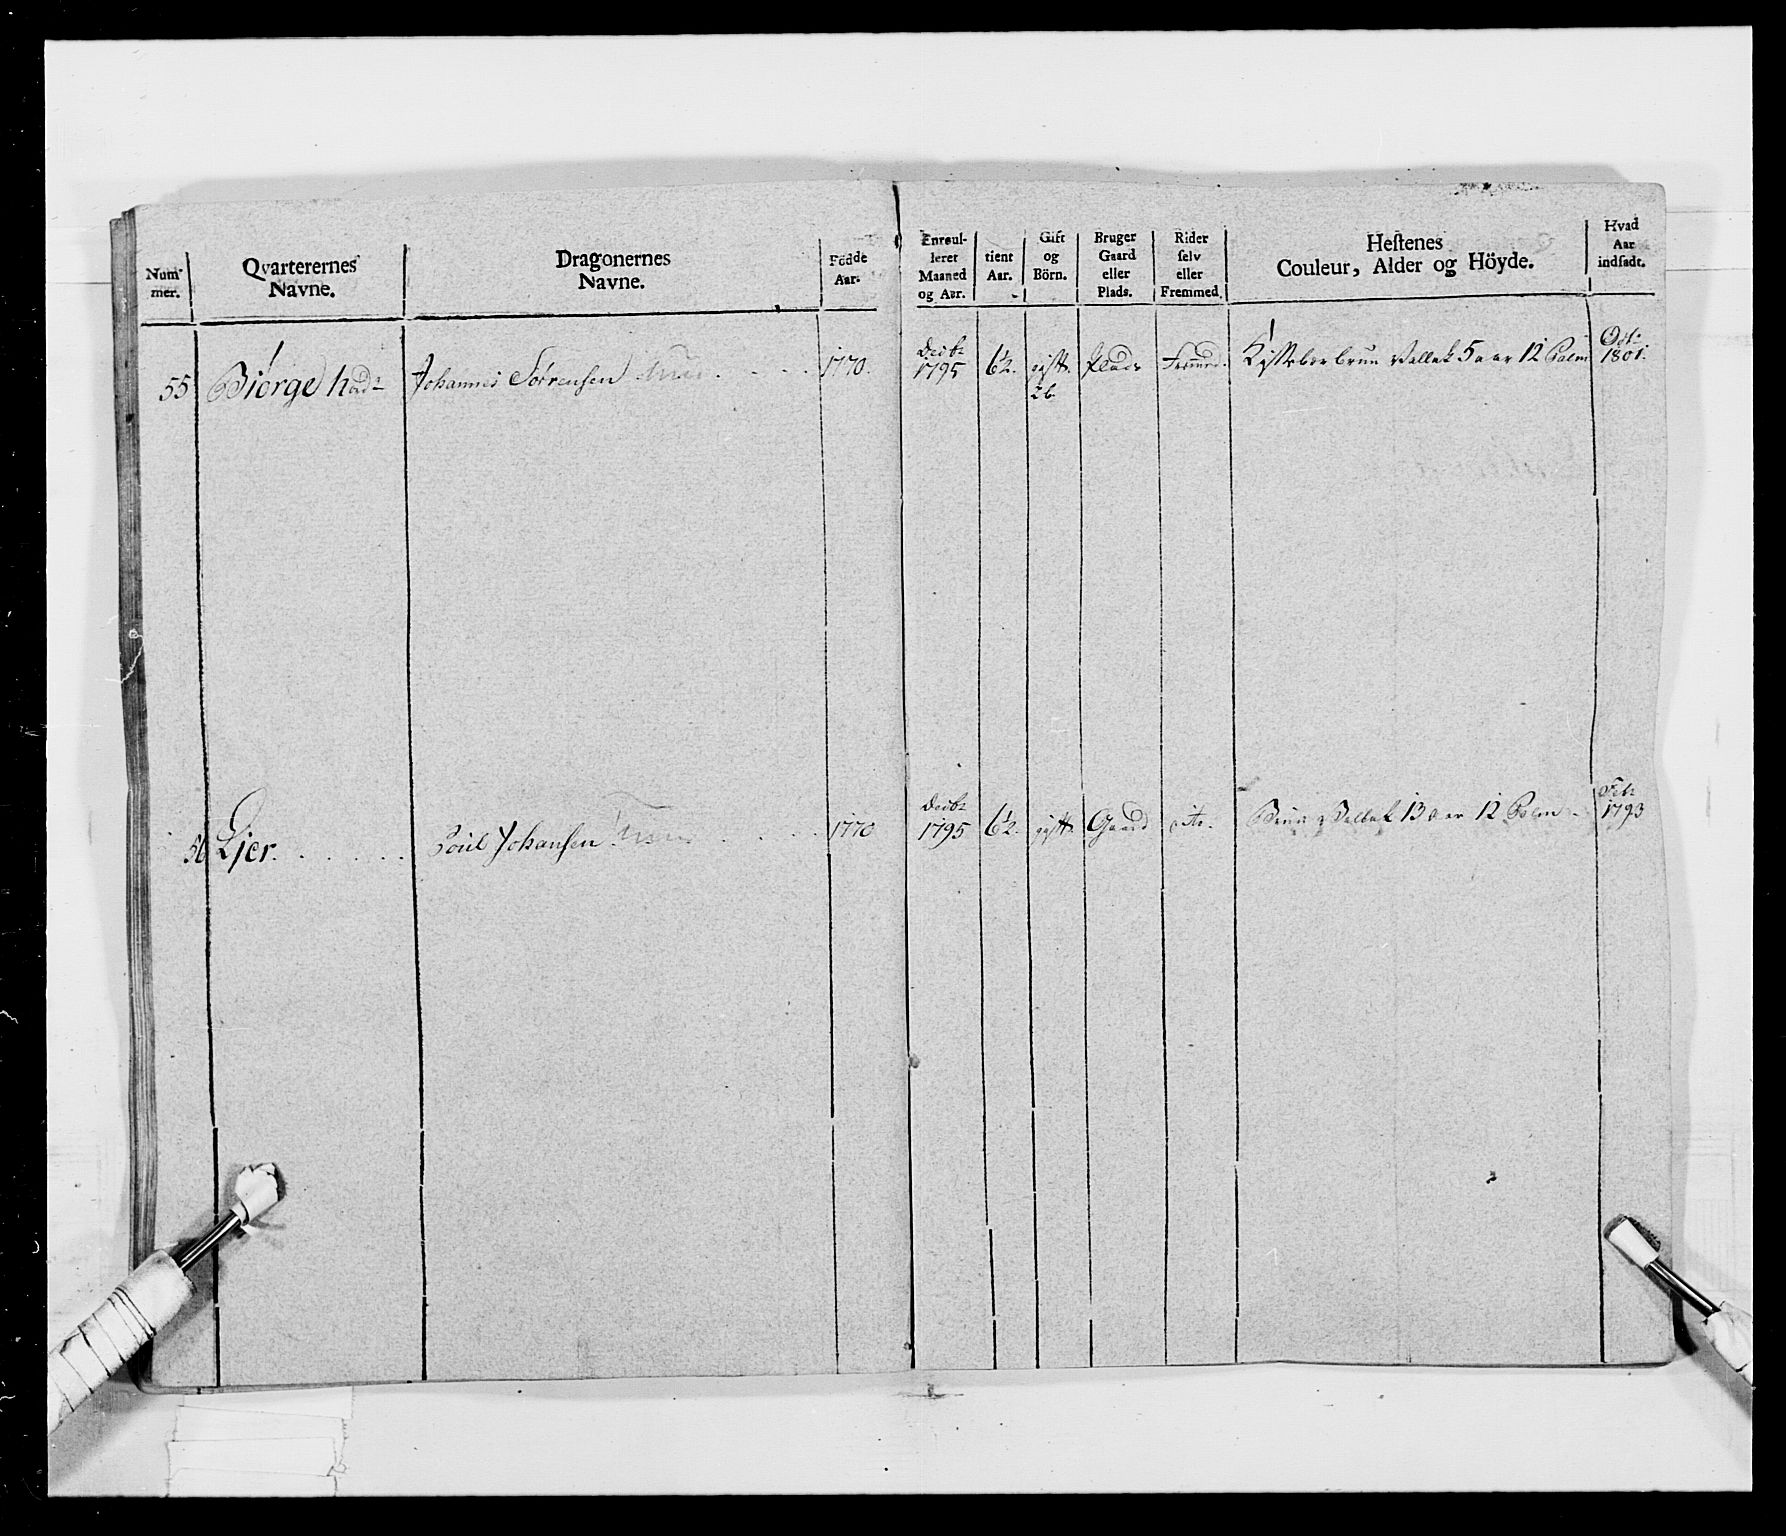 Num-
mer.
Qvarterernes
Navne.
Dragonernes
Navne.
Födde
Aar.
Enroul-
leret
Maaned
og Aar.
tient
Aar.
Gift
og
Börn.
Bruger
Gaard
eller
Plads.
Rider
selv
eller
Fremmed.
Hestenes
Couleur, Alder og Höyde.
Hvad
Aar
indsadt.
55 Biörge Johannes Sörensen 1770. Decbr 1795 6½. gift. 2 b. Plads Fremed. Kystebær brun Vallak 5 aar 12 Palm Oct: 1801.
56 Ljer. Poul Johansen 1770 Decbr 1795 6½. gift. Gaard dito. Brun Vallak 13 aar 12 Palm. Feb: 1793